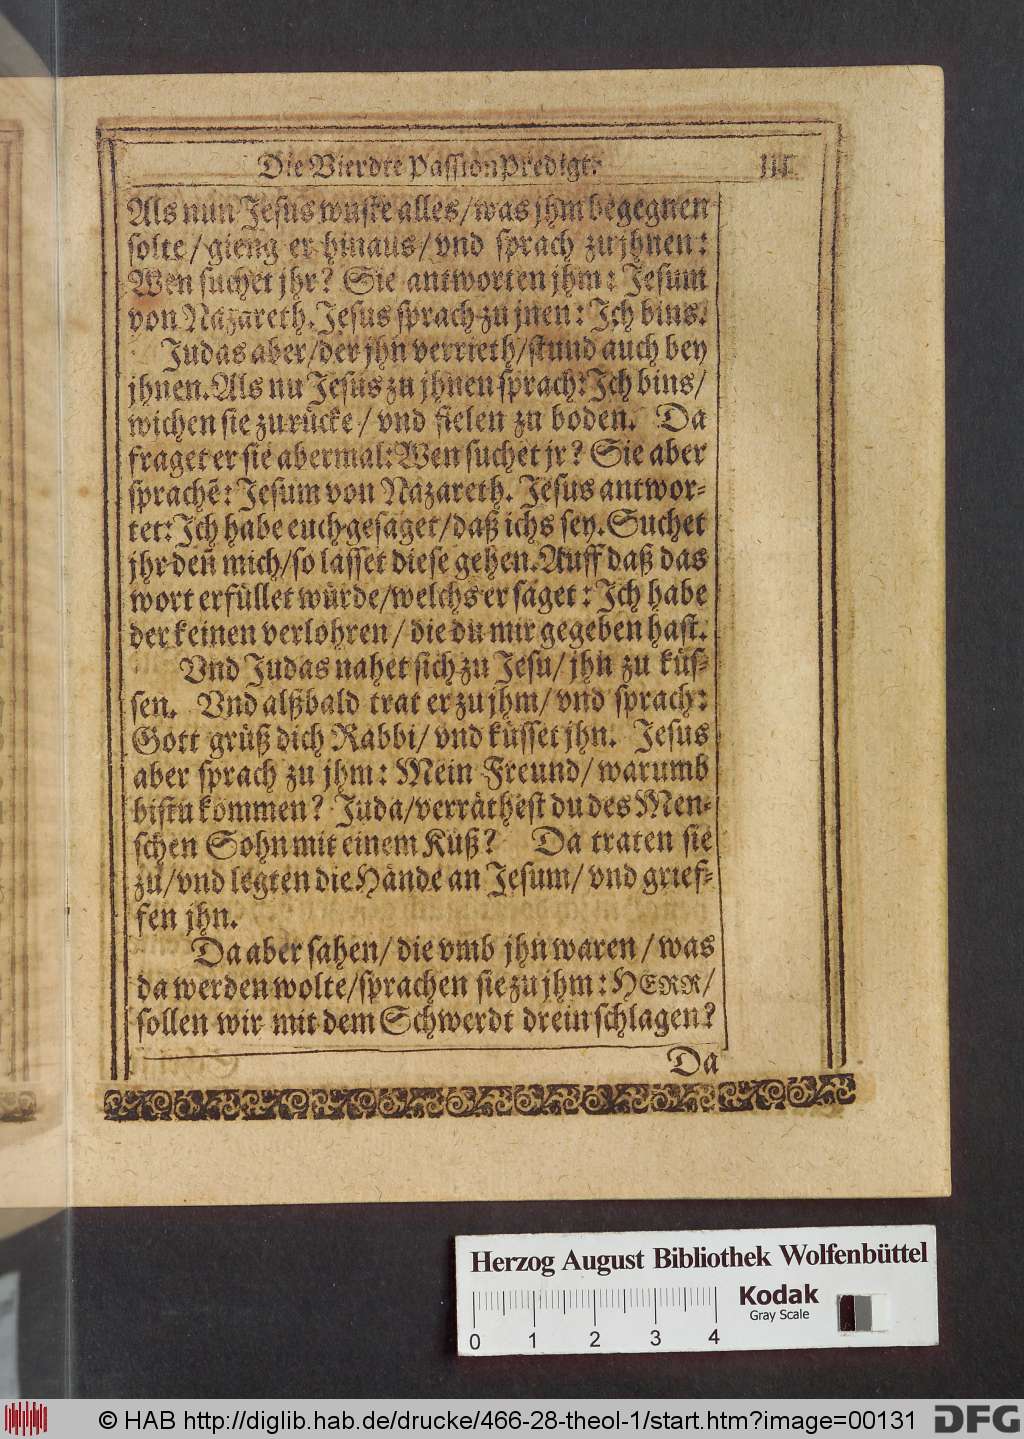 Die Vierdte PassionPredigt.
Als nun Jesus wuste alles/ was jhm begegnen
solte/ gieng er hinaus/ vnd sprach zu jhnen:
Wen suchet jhr? Sie antworten jhm: Jesum
von Nazareth. Jesus sprach zu jnen: Ich bins.
Judas aber/ der jhn verrieth/ stund auch bey
jhnen. Als nu Jesus zu jhnen sprach: Ich bins/
wichen sie zurücke/ vnd fielen zu boden. Da
fraget er sie abermal: Wen suchet jr? Sie aber
sprachẽ: Jesum von Nazareth. Jesus antwor-
tet: Ich habe euch gesaget/ daß ichs sey. Suchet
jhr deñ mich/ so lasset diese gehen. Auff daß das
wort erfüllet würde/ welchs er saget: Ich habe
der keinen verlohren/ die du mir gegeben hast.
Vnd Judas nahet sich zu Jesu/ jhn zu küs-
sen. Vnd alßbald trat er zu jhm/ vnd sprach:
Gott grüß dich Rabbi/ vnd küsset jhn. Jesus
aber sprach zu jhm: Mein Freund/ warumb
bistu kommen? Juda/ verräthest du des Men-
schen Sohn mit einem Kuß? Da traten sie
zu/ vnd legten die Hände an Jesum/ vnd grief-
fen jhn.
Da aber sahen/ die vmb jhn waren/ was
da werden wolte/ sprachen sie zu jhm: HERR/
sollen wir mit dem Schwerdt drein schlagen?
Da
Herzog August Bibliothek Wolfenbüttel
Kodak
Gray Scale
0 1 2 3 4
© HAB http://diglib.hab.de/drucke/466-28-theol-1/start.htm?image=00131
DFG